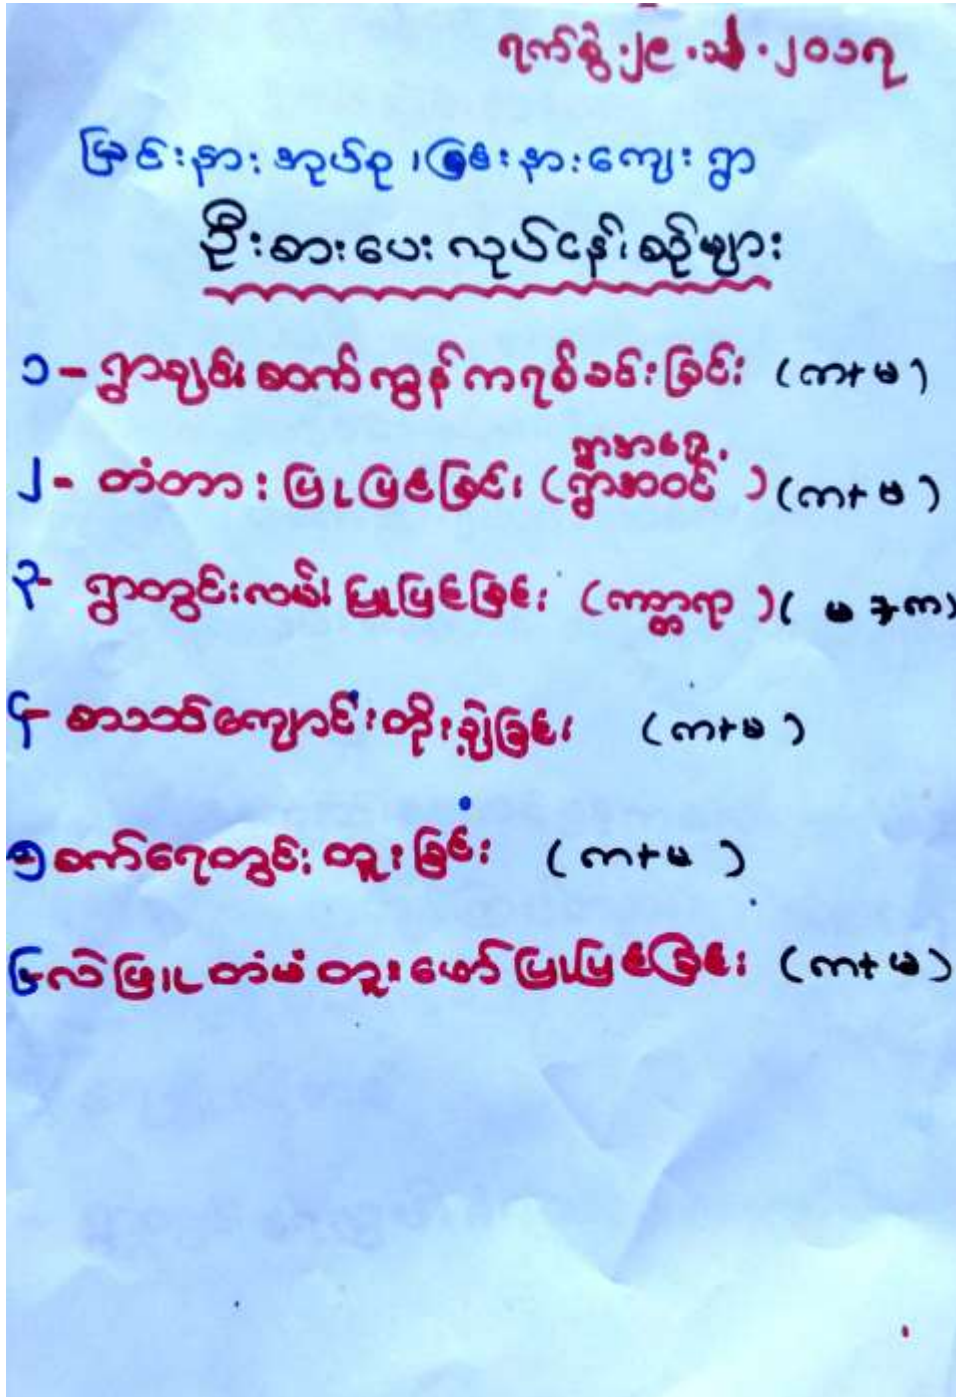 ရက်စွဲ ၊ ၂၉ ၊ ၊ ၂၀၁၇
မြင်းနား အုပ်စု ၊ မြင်းနား ကျေး ရွာ
ဦးစားပေး လုပ်ငန်း စဉ်များ
၁ - ရွာချင်း ဆက် ကွန် ကရစ် ခင်း ခြင်း (က+မ)
ရွာအရှေ့၊
၂ - တံတား ပြု ပြင် ခြင်း (ရွာအဝင်) (က+မ)
၃- ရွာတွင်း လမ်း ပြု ပြင် ခြင်း (ကတ္တရာ) (မ+က)
၄- စာသင်ကျောင်း တိုးချဲ့ခြင်း (က+မ)
၅-စက်ရေတွင်း တူး ခြင်း (က+မ)
၆-လဲ မြူ တံမံ တူးဖော် ပြုပြင် ခြင်း (က+မ)